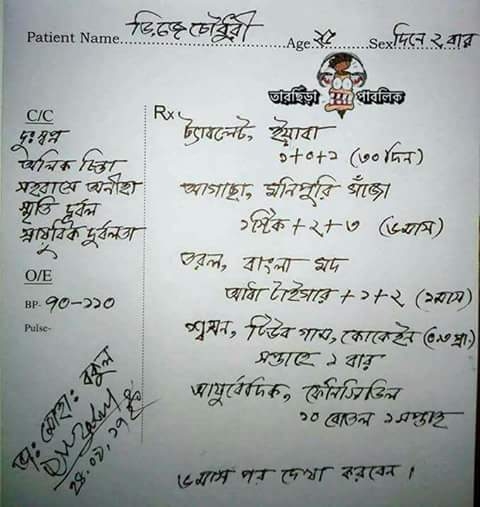 Patient Name ডিজে চৌধুরী Age ২৫ Sex দিনে ২ বার
তারছিঁড়া পাবলিক
C/C
দুঃস্বপ্ন
অলিক চিন্তা
সহবাসে অনীহা
স্মৃতি দুর্বল
স্নায়ুবিক দুর্বলতা
O/E
BP- ৯০-১১০
Pulse-
Rx
ট্যাবলেট, ইয়াবা
১+০+১ (৩০ দিন)
আগাছা, মনিপুরি গাঁজা
১স্টিক + ২ + ৩ (৬মাস)
তরল, বাংলা মদ
আধা টাইগার + ১ + ২ (১মাস)
শ্বসন, টিউব গাম, কোকেইন
সপ্তাহে ১ বার
আয়ুর্বেদিক, ফেনসিডিল
১০ বোতল ১ সপ্তাহ
ডা: মোহা: বকুল
৬ মাস পর দেখা করবেন।